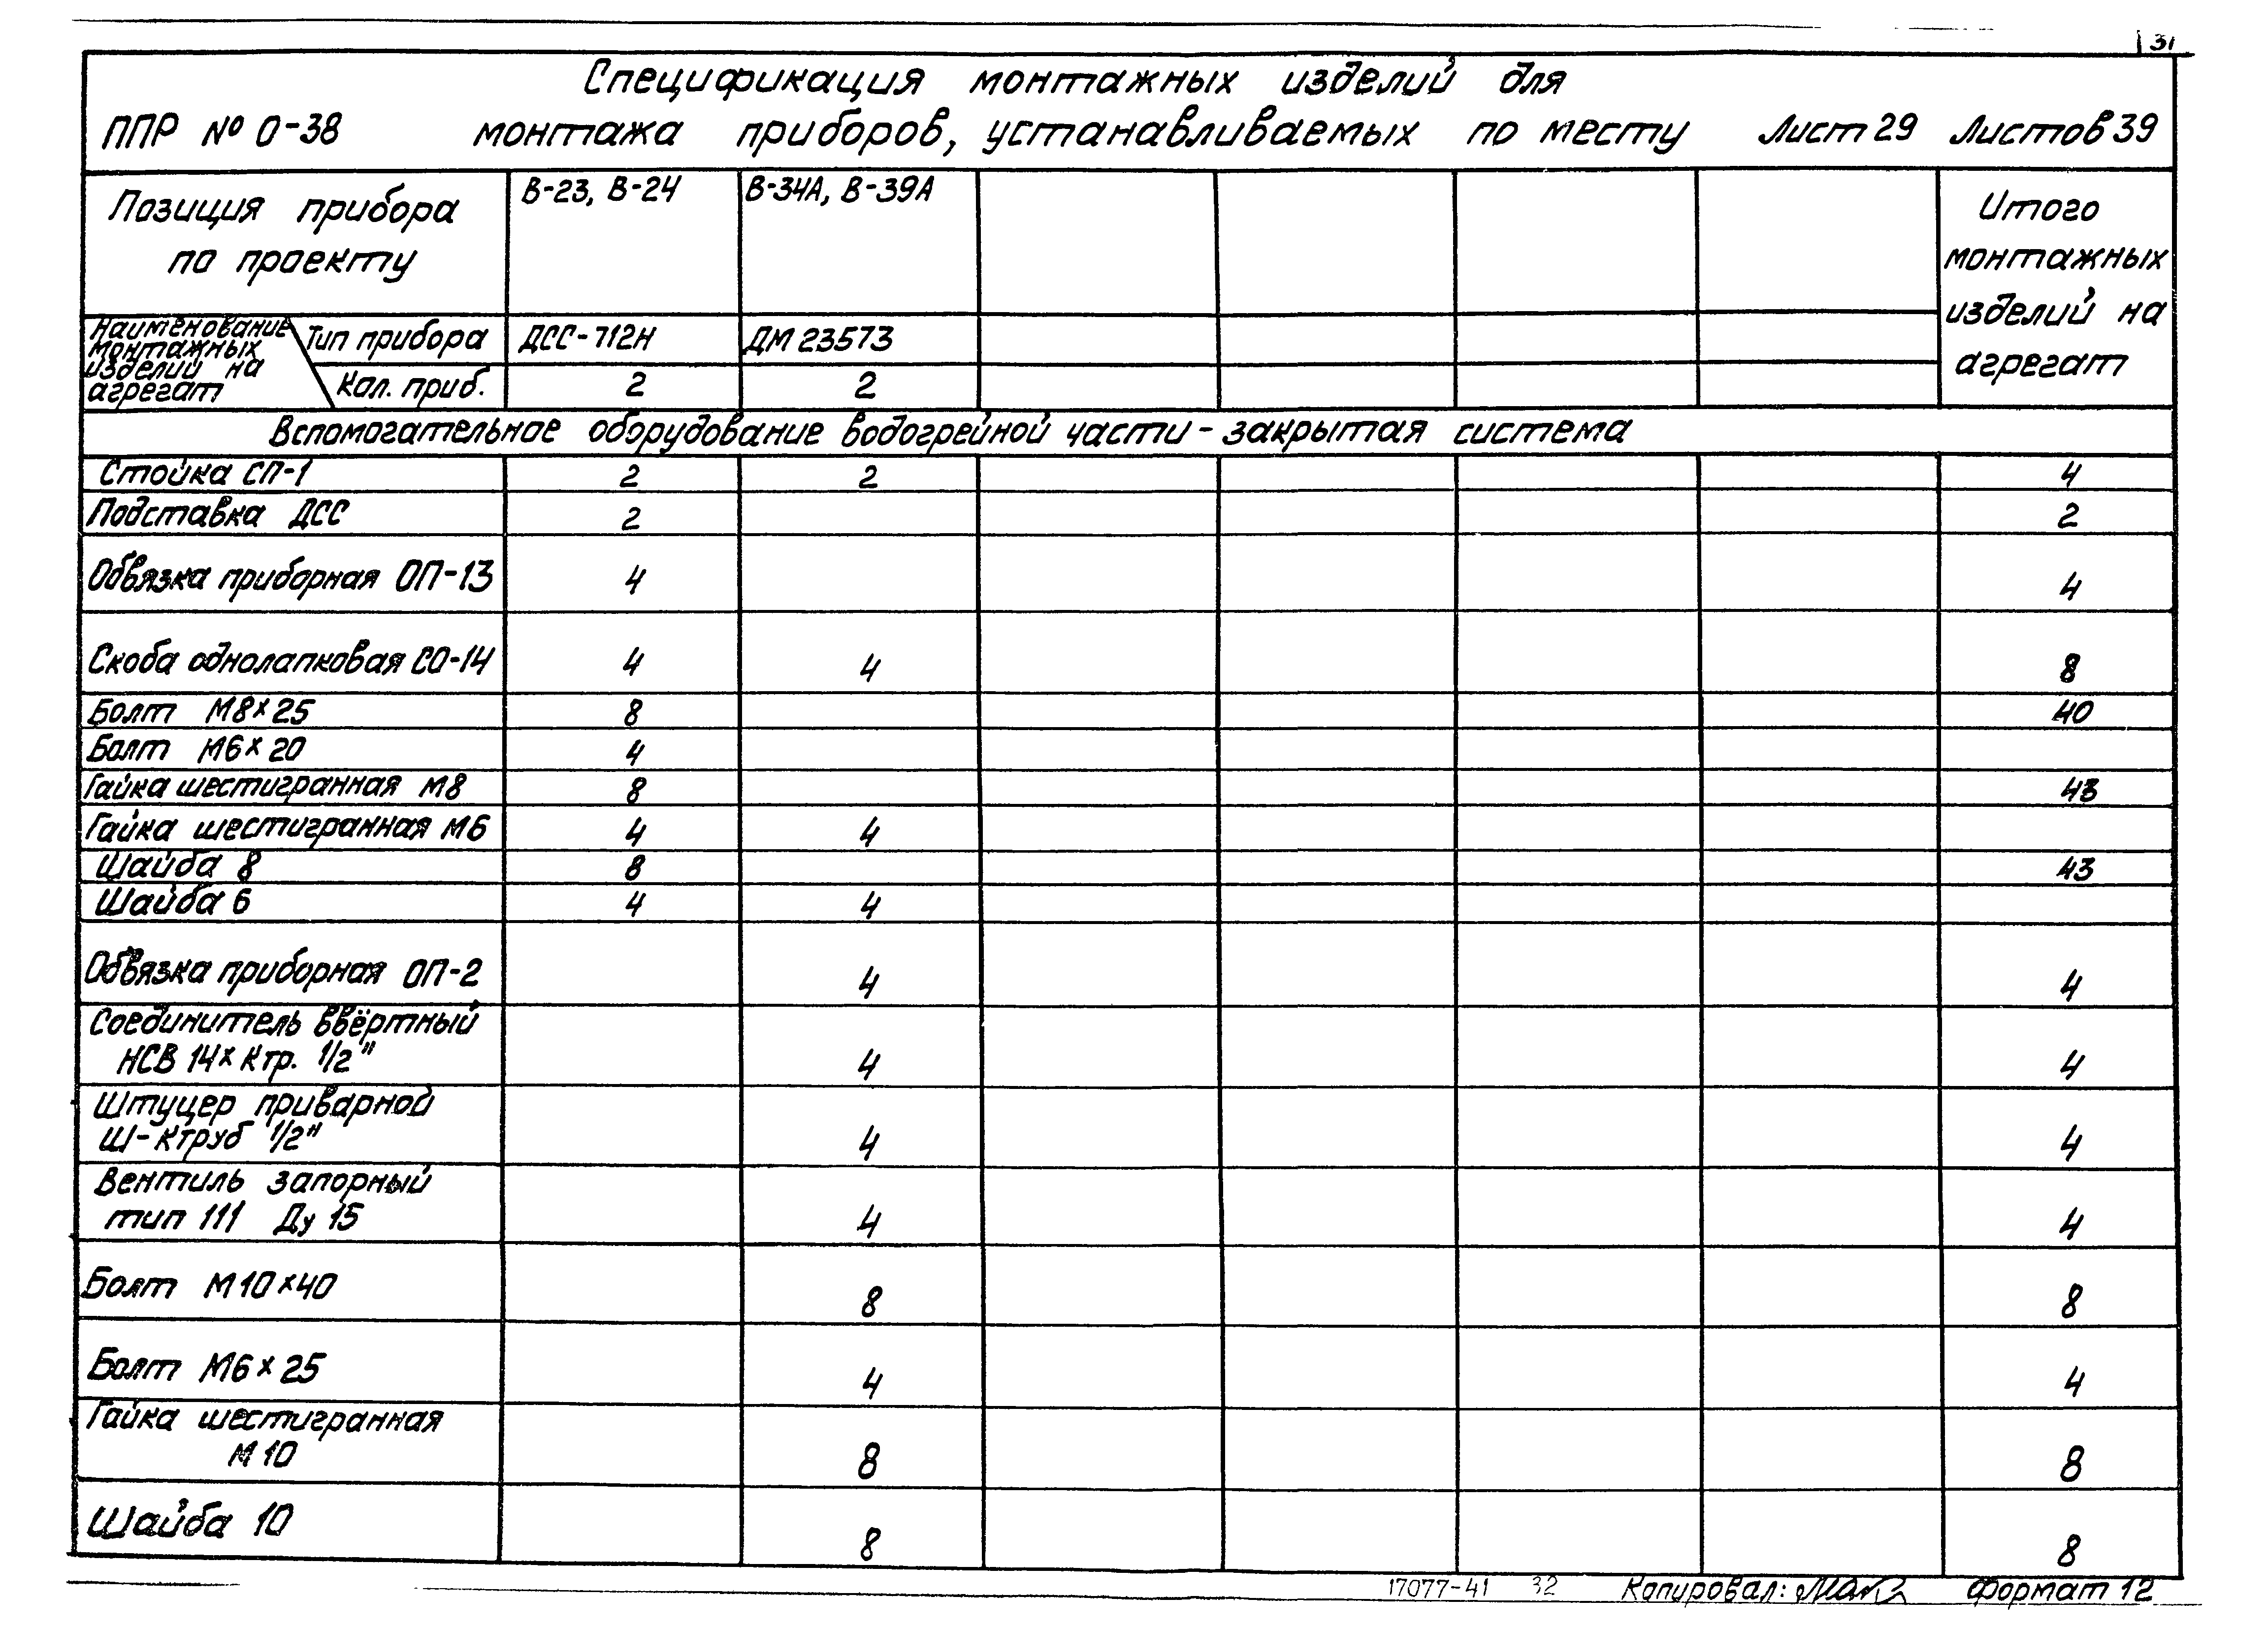 31
Спецификация монтажных изделий для
ППР № О-38 монтажа приборов, устанавливаемых по месту Лист 29 Листов 39
Позиция прибора по проекту В-23, В-24 В-34А, В-39А Итого монтажных изделий на агрегат
Наименование монтажных изделий на агрегат
Тип прибора ДСС-712Н ДМ 23573
Кол. приб. 2 2
Вспомогательное оборудование водогрейной части - закрытая система
Стойка СП-1 2 2 4
Подставка ДСС 2 2
Обвязка приборная ОП-13 4 4
Скоба однолапковая СО-14 4 4 8
Болт М8×25 8 40
Болт М6×20 4
Гайка шестигранная М8 8 43
Гайка шестигранная М6 4 4
Шайба 8 8 43
Шайба 6 4 4
Обвязка приборная ОП-2 4 4
Соединитель ввёртный
НСВ 14× К тр. 1/2" 4 4
Штуцер приварной
Ш-К труб 1/2" 4 4
Вентиль запорный
тип 111 Ду 15 4 4
Болт М10×40 8 8
Болт М6×25 4 4
Гайка шестигранная
М10 8 8
Шайба 10 8 8
17077-41 32 Копировал: Формат 12